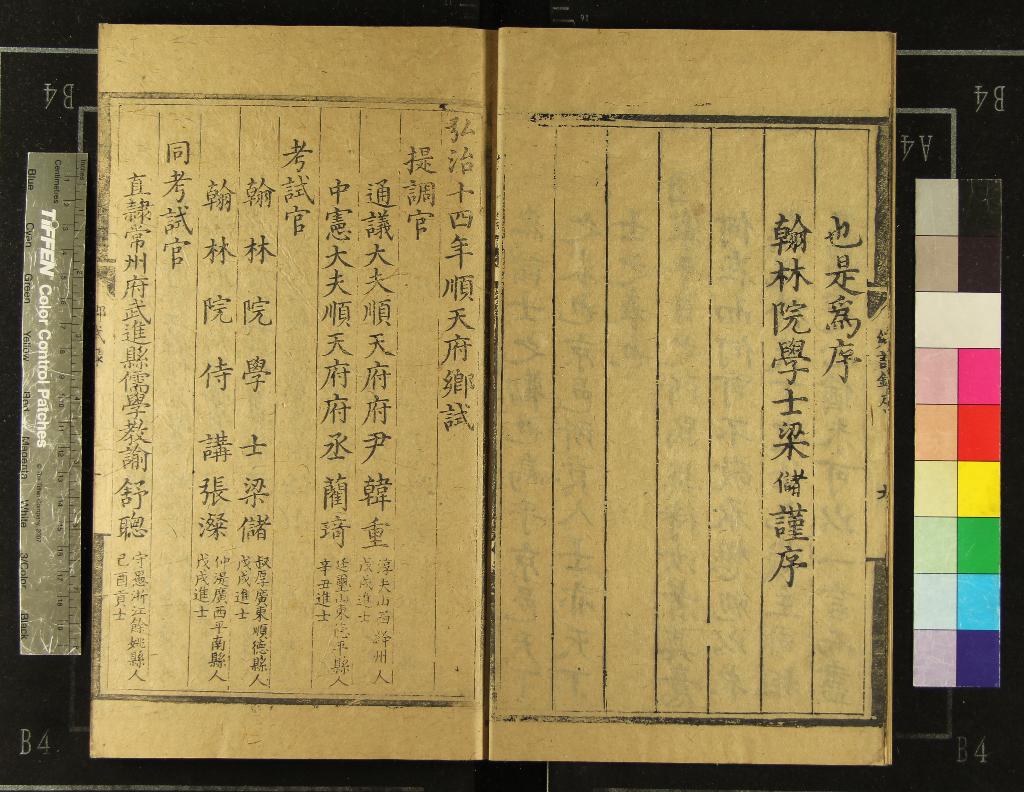 也是爲序
翰林院學士梁儲謹序
弘治十四年順天府鄉試
提調官
通議大夫順天府府尹韓重
淳夫山西絳州人
戊戌進士
中憲大夫順天府府丞藺琦
廷璽山東德平縣人
辛丑進士
考試官
翰林院學士梁儲
叔厚廣東順德縣人
戊戌進士
翰林院侍講張澯
仲湜廣西平南縣人
戊戌進士
同考試官
直隷常州府武進縣儒學教諭舒聰
守愚浙江餘姚縣人
己酉貢士
B4
B4
A4
B4
B4
Centimetres
Inches
TIFFEN Color Control Patches
Blue
Cyan
Green
Yellow
Red
Magenta
White
3/Color
Black